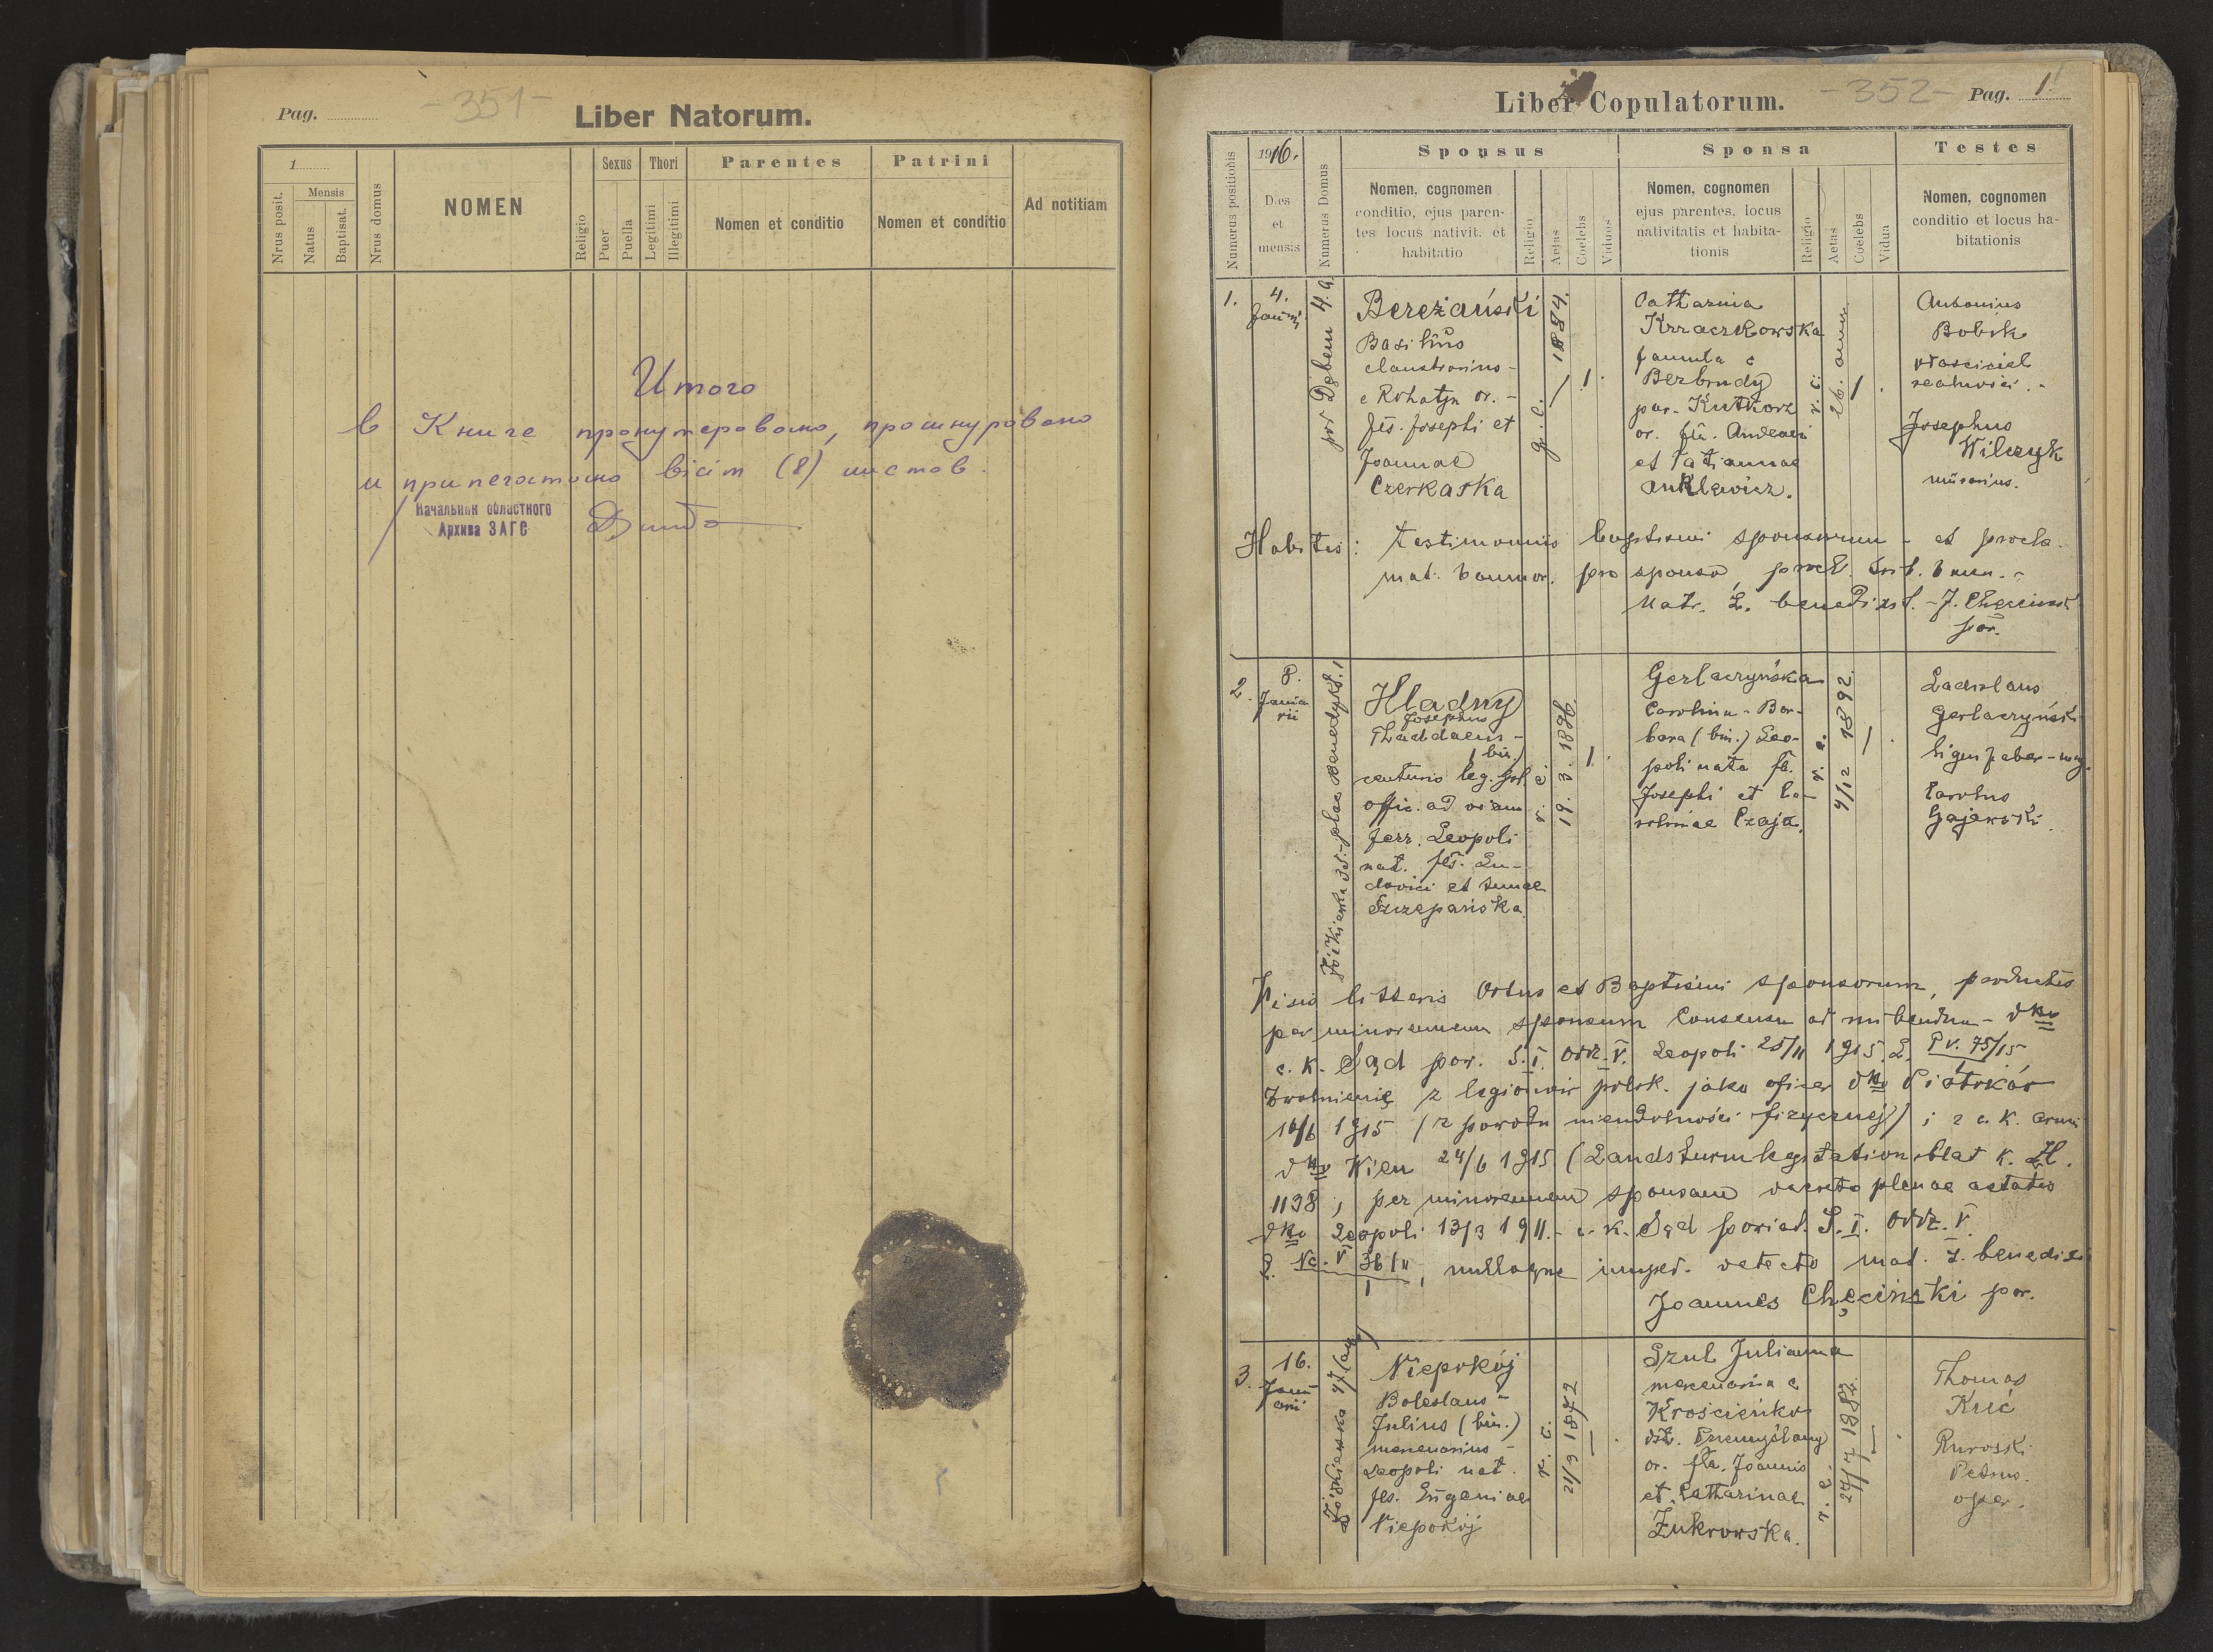 Pag.
- 351 -
Liber Natorum.
1
Nrus posit.
Mensis
Natus
Baptisat.
Nrus domus
NOMEN
Religio
Sexus
Puer
Puella
Thori
Legitimi
Illegitimi
Parentes
Nomen et conditio
Patrini
Nomen et conditio
Ad notitiam
Итого
в Книге пронумеровано, прошнуровано
и припечатано вісім (8) листов.
Начальник областного
Архива ЗАГС
Liber Copulatorum.
- 352 -
Pag. 1
Numerus positionis
1916.
Dies
et
mensis
Numerus Domus
Sponsus
Nomen, cognomen
conditio, ejus paren-
tes locus nativit. et
habitatio
Religio
Aetas
Coelebs
Viduus
Sponsa
Nomen, cognomen
ejus parentes, locus
nativitatis et habita-
tionis
Religio
Aetas
Coelebs
Vidua
Testes
Nomen, cognomen
conditio et locus ha-
bitationis
1.
4.
pod Dębem 4.a
Bereżański
Basilius
e Rohatyn or. -
fls. Josephi et
Joannae
Czerkaska
g. c.
1884.
1.
Catharina
Krzaczkowska
famula e
Bezbrudy
par. Kutkorz
or. fla. Andreae
et Tatiannae
Anklewicz.
r. c.
26. ann.
1
Antonius
Bobik
właściciel
realności. -
Josephus
Wilczyk
Habitis: testimoniis baptismi sponsorum - et procla-
mat. bannor. pro sponso,
Matr. L. benedixit. - J. Chęciński
par.
2.
8.
Janua-
rii
plac Benedykt. 1
Hladny
Josephus
Thaddaeus -
(bin.)
centurio leg. pol.
offic. ad viam
ferr. Leopoli
nat. fls. Lu-
dovici et Annae
Szczepańska
r. c.
19. 3. 1896
1.
Gerlaczyńska
Carolina - Bar-
bara (bin.) Leo-
poli nata fla.
Josephi et Ca-
rolinae Czaja.
r. c.
4/12 1892
1
Ladislaus
Gerlaczyński
Carolus
Gajewski
Visis litteris Ortus et Baptismi sponsorum, productis
per minorennem sponsum Consensu ad nubendum - dto
c. k. Sąd pow. S. I. Odz. V. Leopoli 25/11 1915 L. P V. 75/15
Zwolnienie z legionów polsk. jako oficer dto Piotrków
16/6 1915 (z powodu niezdolności fizycznej) i z c. k. armii
dto Wien 24/6 1915 (Landsturmlegitationsblat K. H.
1138; per minorennem sponsam decreto plenae aetatis
dto Leopoli 13/3 1911. - c. k. Sąd powiat. S. I. Odz. V
L. Nc. V 36/11, nulloque imped. detecto mat. L. benedixi
1
Joannes Chęciński par.
3.
16.
Janu-
arii
Żółkiewska
Niepokój
Boleslaus -
Julius (bin.)
mercenarius -
Leopoli nat.
fls. Eugeniae
Niepokój
r. c.
21/3 1872
Szul Julianna
mercenaria e
Krościenko
dst. Przemyślany
or. fla. Joannis
et Catharinae
Żukrowska.
r. c.
27/7 1882.
1
Thomas
Kuć
Rurski
Petrus.
oper.